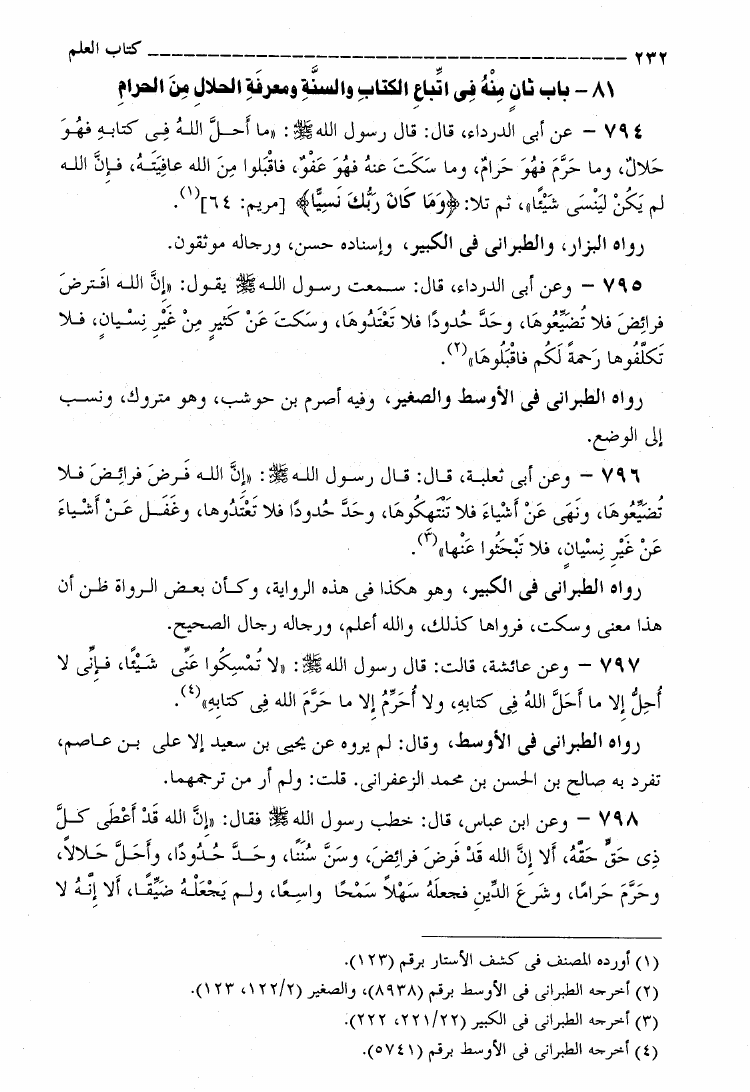 ٢٣٢ ــــــــــــــــــــــــــــــــــــــــــــــــــــــ كتاب العلم
٨١ - باب ثان مِنْهُ فِى اتِّباعِ الكتابِ والسنَّةِ ومعرفَةِ الحلالِ مِنَ الحرامِ
٧٩٤ - عن أبى الدرداء، قال: قال رسول الله ﷺ: «ما أَحلَّ اللهُ فِى كتابهِ فهُوَ
حَلالٌ، وما حَرَّمَ فهُوَ حَرامٌ، وما سَكَتَ عنهُ فهُوَ عَفْوٌ، فاقْبَلوا مِنَ الله عافِيَتَهُ، فإنَّ الله
لم يَكُنْ لَيَنْسَى شَيْئًا»، ثم تلا: ﴿وَمَا كَانَ رَبُّكَ نَسِيًّا﴾ [مريم: ٦٤](١).
رواه البزار، والطبرانى فى الكبير، وإسناده حسن، ورجاله موثقون.
٧٩٥ - وعن أبى الدرداء، قال: سمعت رسول الله ﷺ يقول: «إنَّ الله افترضَ
فرائِضَ فلا تُضَيِّعُوهَا، وحَدَّ حُدودًا فلا تَعْتَدُوهَا، وسكَتَ عَنْ كثيرٍ مِنْ غَيْرِ نِسْيانٍ، فلا
تَكلَّفُوها رَحمةً لَكُم فاقْبَلُوهَا»(٢).
رواه الطبرانى فى الأوسط والصغير، وفيه أصرم بن حوشب، وهو متروك، ونسب
إلى الوضع.
٧٩٦ - وعن أبى ثعلبة، قال: قال رسول الله ﷺ: «إنَّ الله فَرضَ فرائِضَ فلا
تُضَيِّعُوهَا، ونَهَى عَنْ أشْياءَ فلا تَنْتَهِكُوهَا، وحَدَّ حُدودًا فلا تَعْتَدُوها، وغَفَل عَنْ أشْياءَ
عَنْ غَيْرِ نِسْيانٍ، فلا تَبْحَثُوا عَنْها»(٣).
رواه الطبرانى فى الكبير، وهو هكذا فى هذه الرواية، وكأن بعض الرواة ظن أن
هذا معنى وسكت، فرواها كذلك، والله أعلم، ورجاله رجال الصحيح.
٧٩٧ - وعن عائشة، قالت: قال رسول الله ﷺ: «لا تُمْسِكُوا عَنِّى شَيْئًا، فإنِّى لا
أُحِلُّ إلا ما أَحَلَّ اللهُ فِى كتابهِ، ولا أُحَرِّمُ إلا ما حَرَّمَ الله فِى كتابِهِ»(٤).
رواه الطبرانى فى الأوسط، وقال: لم يروه عن يحيى بن سعيد إلا على بن عاصم،
تفرد به صالح بن الحسن بن محمد الزعفرانى. قلت: ولم أر من ترجمهما.
٧٩٨ - وعن ابن عباس، قال: خطب رسول الله ﷺ فقال: «إنَّ الله قَدْ أَعْطَى كلَّ
ذِى حَقٍّ حَقَّهُ، ألا إنَّ الله قَدْ فَرضَ فرائِضَ، وسَنَّ سُنَنًا، وحَدَّ حُدُودًا، وأَحَلَّ حَلالاً،
وحَرَّمَ حَرامًا، وشرعَ الدِّينِ فجعلَهُ سَهْلاً سَمْحًا واسِعًا، ولم يَجْعَلْهُ ضَيِّقًا، ألا إنَّهُ لا
(١) أورده المصنف فى كشف الأستار برقم (١٢٣).
(٢) أخرجه الطبرانى فى الأوسط برقم (٨٩٣٨)، والصغير (١٢٢/٢، ١٢٣).
(٣) أخرجه الطبرانى فى الكبير (٢٢١/٢٢، ٢٢٢).
(٤) أخرجه الطبرانى فى الأوسط برقم (٥٧٤١).